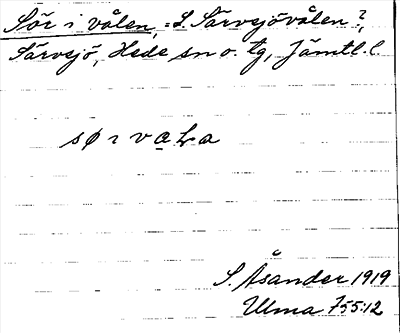 Sör i vålen, = L. Särvsjövålen?,
Särvsjö, Hede sn o. tg, Jämtl. l.
sø ı vaLa
S. Åsander 1919
Ulma 755:12